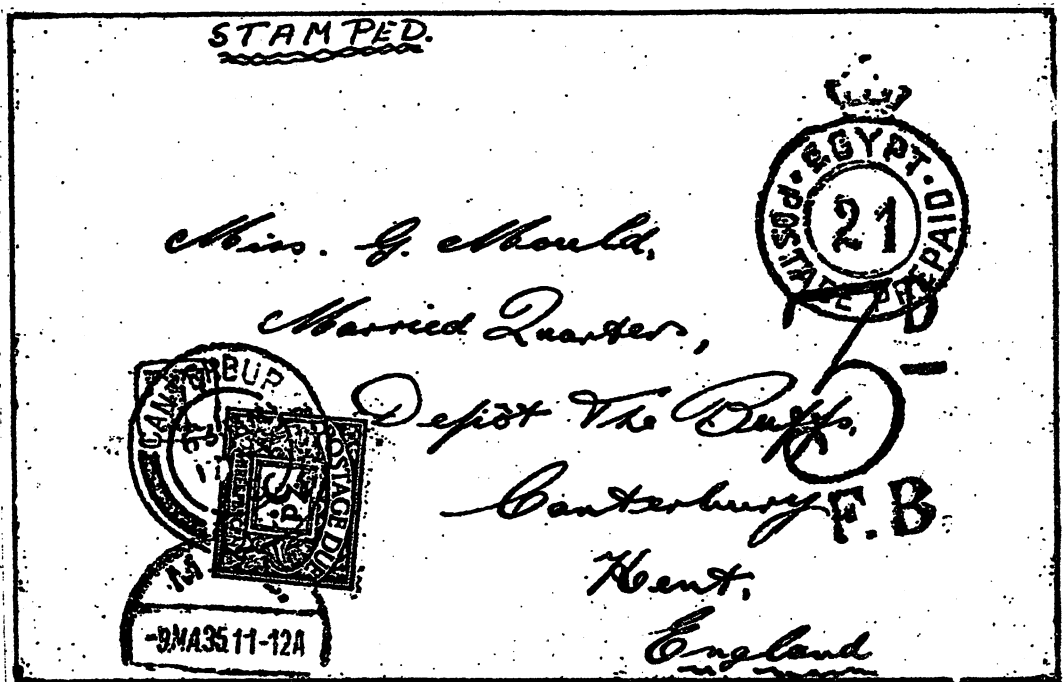 STAMPED.
EGYPT
POSTAGE PREPAID
21
Miss. G. Mould,
Married Quarters,
3 D
Depôt The Buffs,
Canterbury
F.B
Kent,
England
POSTAGE DUE
-9MA35 11-12A